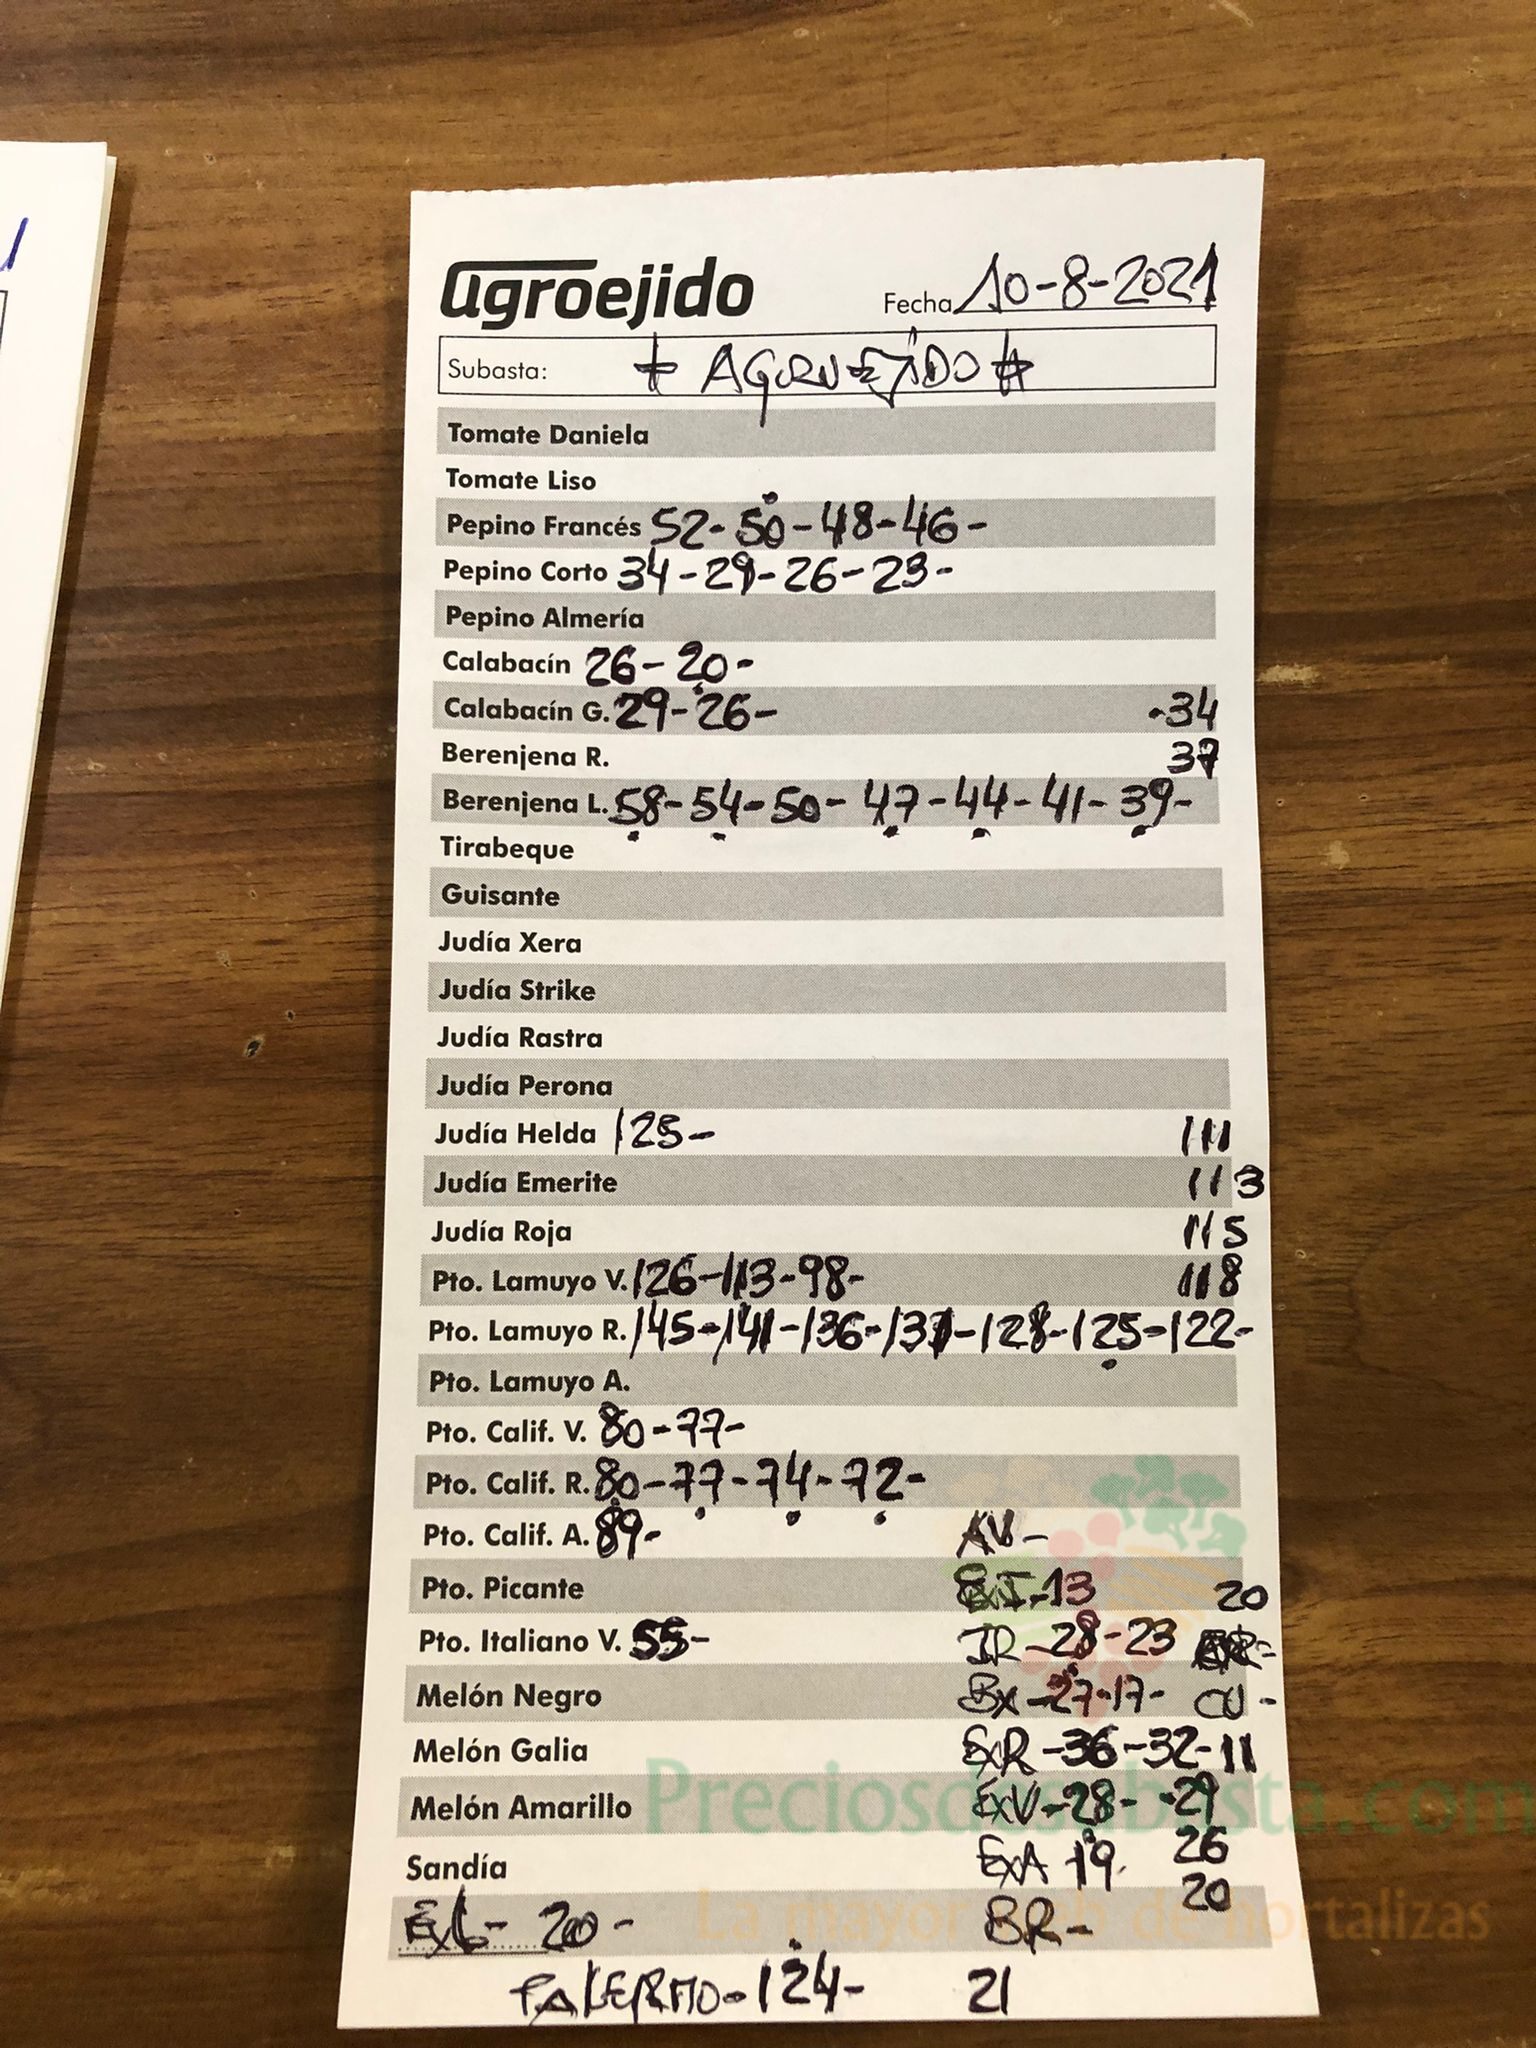 agroejido
Fecha 10-8-2021
Subasta: AGROEJIDO
Tomate Daniela
Tomate Liso
Pepino Francés 52-50-48-46-
Pepino Corto 34-29-26-23-
Pepino Almería
Calabacín 26-20-
Calabacín G. 29-26- -34
Berenjena R. 37
Berenjena L. 58-54-50-47-44-41-39-
Tirabeque
Guisante
Judía Xera
Judía Strike
Judía Rastra
Judía Perona
Judía Helda 125- 111
Judía Emerite 113
Judía Roja 115
Pto. Lamuyo V. 126-113-98- 118
Pto. Lamuyo R. 145-141-136-131-128-125-122-
Pto. Lamuyo A.
Pto. Calif. V. 80-77-
Pto. Calif. R. 80-77-74-72-
Pto. Calif. A. 89- AV-
Pto. Picante -13 20
Pto. Italiano V. 55- IR-28-23
Melón Negro BX-27-17- CU-
Melón Galia ExR-36-32-11
Melón Amarillo ExV-28- -29
Sandía ExA 19- 26
20
20- BR-
PALERMO-124- 21
Preciosdesubasta.com
La mayor web de hortalizas